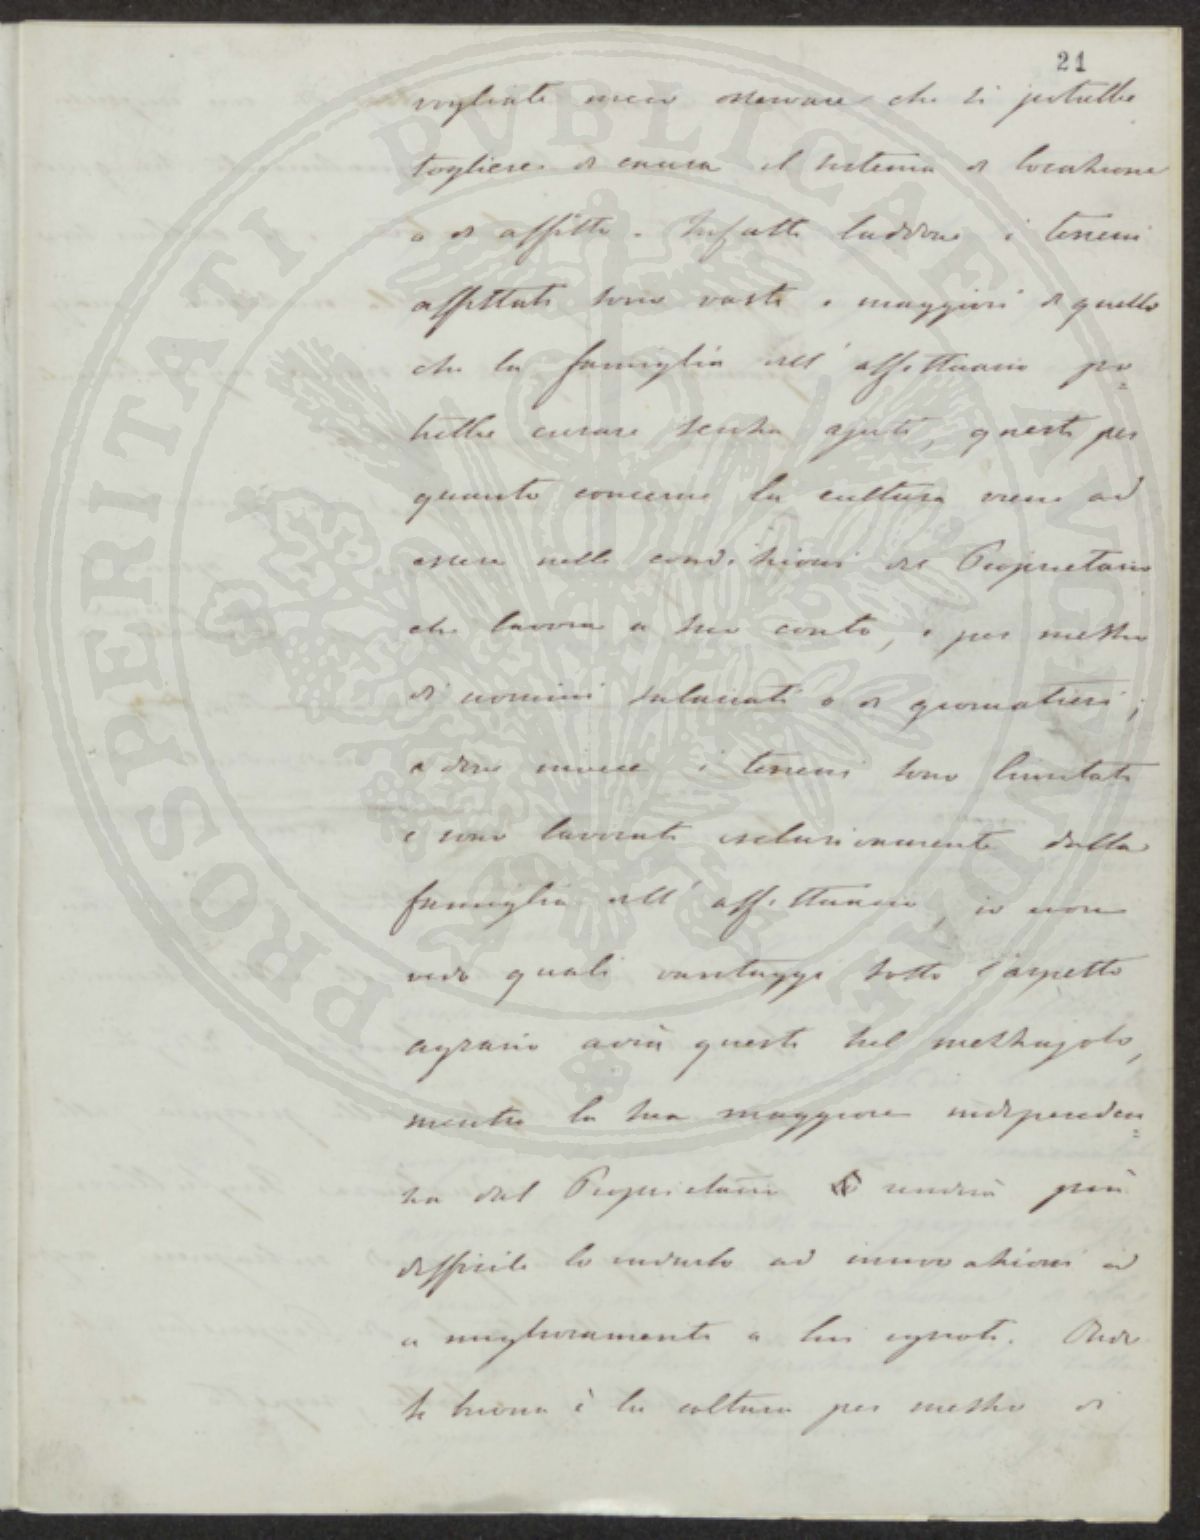 21
vogliate meco osservare che si potrebbe
togliere di causa il sistema di locazione
o di affitto. Infatti laddove i terreni
affittati sono vasti e maggiori di quello
che la famiglia dell'affittuario po=
trebbe curare senza ajuti, questi per
quanto concerne la cultura viene ad
essere nelle condizioni del Proprietario
che lavora a suo conto, e per mezzo
di uomini salariati o di giornalieri;
e dove invece i terreni sono limitati
e sono lavorati esclusivamente dalla
famiglia dell'affittuario, io non
vedo quali vantaggi sotto l'aspetto
agrario avrà questi sul mezzajolo,
mentre la sua maggiore indipenden=
za dal Proprietario renderà più
difficile lo indurlo ad innovazioni ed
a miglioramenti a lui ignoti. Onde
se buona è la coltura per mezzo di
PROSPERITATI PUBLICAE AUGENDAE